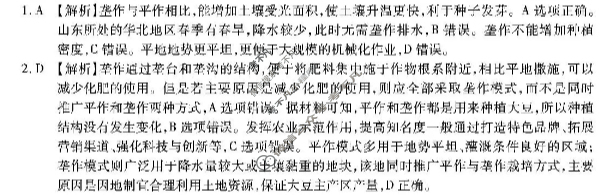 1. A 【解析】垄作与平作相比,能增加土壤受光面积,使土壤升温更快,利于种子发芽。A 选项正确。
山东所处的华北地区春季有春旱,降水较少,此时无需垄作排水,B 错误。垄作不能增加种植
密度,C 错误。平地地势更平坦,更便于大规模的机械化作业,D 错误。
2. D 【解析】垄作通过垄台和垄沟的结构,便于将肥料集中施于作物根系附近,相比平地撒施,可以
减少化肥的使用。但是若主要原因是减少化肥的使用,则应全部采取垄作模式,而不是同时
推广平作和垄作两种方式,A 选项错误。据材料可知,平作和垄作都是用来种植大豆,所以种植
结构没有发生变化,B 选项错误。发挥农业示范作用,提高知名度一般通过打造特色品牌、拓展
营销渠道、强化科技与创新等,C 选项错误。平作模式多用于地势平坦、灌溉条件良好的区域;
垄作模式则广泛用于降水量较大或土壤黏重的地块,该地同时推广平作与垄作栽培方式,主要
原因是因地制宜合理利用土地资源,保证大豆主产区产量,D 正确。